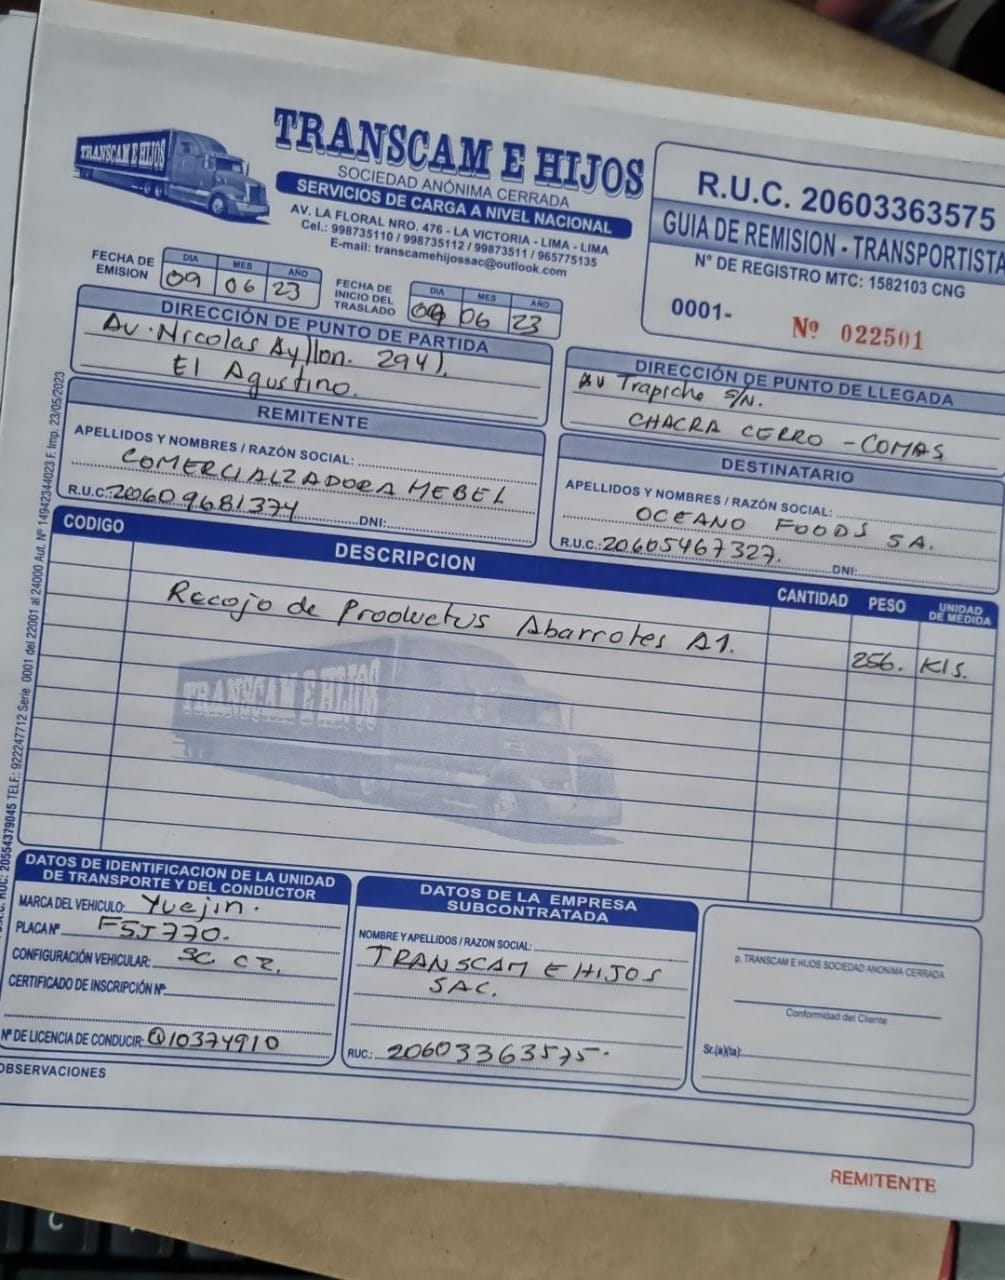 TRANSCAM E HIJOS
TRANSCAM E HIJOS
SOCIEDAD ANÓNIMA CERRADA
SERVICIOS DE CARGA A NIVEL NACIONAL
AV. LA FLORAL NRO. 476 - LA VICTORIA - LIMA - LIMA
Cel.: 998735110 / 998735112 / 99873511 / 965775135
E-mail: transcamehijossac@outlook.com
R.U.C. 20603363575
GUIA DE REMISION - TRANSPORTISTA
N° DE REGISTRO MTC: 1582103 CNG
0001- Nº 022501
FECHA DE EMISION
DIA MES AÑO
09 06 23
FECHA DE INICIO DEL TRASLADO
DIA MES AÑO
09 06 23
DIRECCIÓN DE PUNTO DE PARTIDA
Av. Nicolas Ayllon. 2941.
El Agustino.
DIRECCIÓN DE PUNTO DE LLEGADA
Av Trapiche S/N.
CHACRA CERRO - COMAS
REMITENTE
APELLIDOS Y NOMBRES / RAZÓN SOCIAL:
COMERCIALZADORA MEBEL
R.U.C.: 20609681374 DNI:
DESTINATARIO
APELLIDOS Y NOMBRES / RAZÓN SOCIAL:
OCEANO FOODS SA.
R.U.C.: 20605467327. DNI:
CODIGO DESCRIPCION CANTIDAD PESO UNIDAD DE MEDIDA
Recojo de Productos Abarrotes A1. 256. Kls.
TRANSCAM E HIJOS
DATOS DE IDENTIFICACION DE LA UNIDAD
DE TRANSPORTE Y DEL CONDUCTOR
MARCA DEL VEHICULO: Yuejin.
PLACA Nº FSJ770.
CONFIGURACIÓN VEHICULAR: SC. C2.
CERTIFICADO DE INSCRIPCIÓN Nº
Nº DE LICENCIA DE CONDUCIR: Q10374910
DATOS DE LA EMPRESA
SUBCONTRATADA
NOMBRE Y APELLIDOS / RAZON SOCIAL:
TRANSCAM E HIJOS
SAC.
RUC: 20603363575.
p. TRANSCAM E HIJOS SOCIEDAD ANONIMA CERRADA
Conformidad del Cliente
Sr.(a)(ta):
OBSERVACIONES
REMITENTE
RUC: 20554379045 TELF.: 922247712 Serie 0001 del 22001 al 24000 Aut. Nº 14942344023 F. Imp. 23/05/2023
C